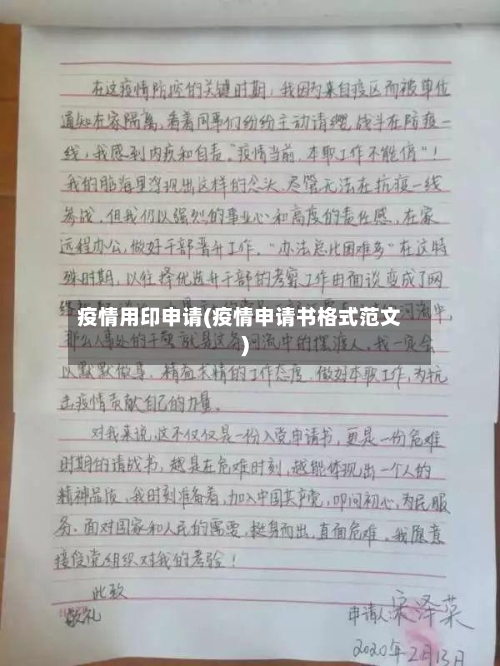 在这疫情防控的关键时期，我因为来自疫区而被单位
通知在家隔离，看着同事们纷纷主动请缨，战斗在防疫一
线，我感到内疚和自责。"疫情当前，本职工作不能停"！
我的脑海里浮现出这样的念头，尽管无法在抗疫一线
参战，但我仍以强烈的事业心和高度的责任感，在家
远程办公，做好干部晋升工作。"办法总比困难多"在这特
殊时期，以往择优选升干部的考察工作由面谈变成了网
疫情用印申请(疫情申请书格式范文
)
以默默做事、精益求精的工作态度，做好本职工作，为抗
击疫情贡献自己的力量。
对我来说，这不仅仅是一份入党申请书，更是一份危难
时期的请战书，越是在危难时刻，越能体现出一个人的
精神品质，我时刻准备着，加入中国共产党，叩问初心，为民服
务。面对国家和人民的需要，挺身而出，直面危难，我愿意
接受党组织对我的考验！
此致
敬礼
申请人：宋泽菜
2020年2月13日